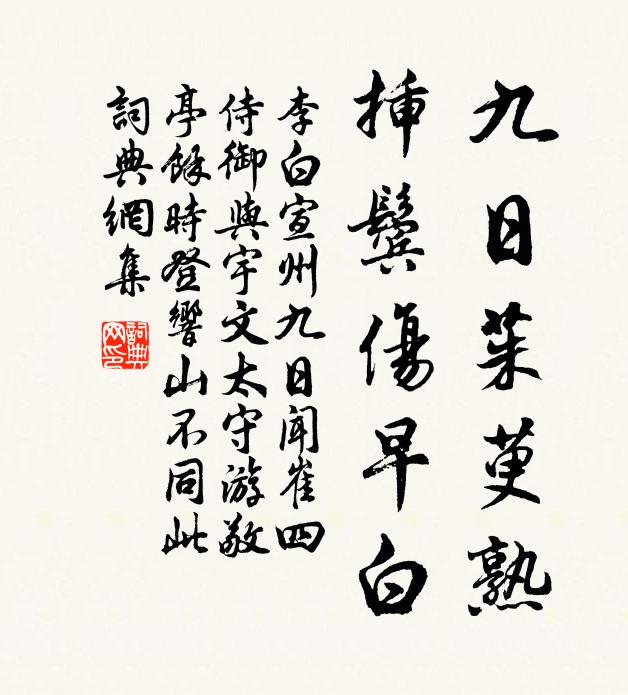 九日茱萸熟
插鬢傷早白
李白宣州九日聞崔四
侍御與宇文太守游敬
亭餘時登響山不同此
詞典網集
詞典網印